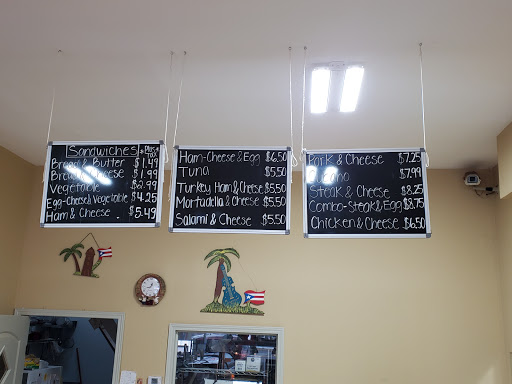 Sandwiches Plus Tax
Bread & Butter $1.49
Cheese $1.99
Vegetable $2.99
Egg-Cheese & Vegetable $4.25
Ham & Cheese . $5.49
Ham-Cheese & Egg $6.50
Tuna $5.50
Turkey Ham & Cheese $5.50
Mortadella & Cheese $5.50
Salami & Cheese $5.50
Pork & Cheese $7.25
$7.99
Steak & Cheese $8.25
Combo-Steak & Egg $8.75
Chicken & Cheese $6.50